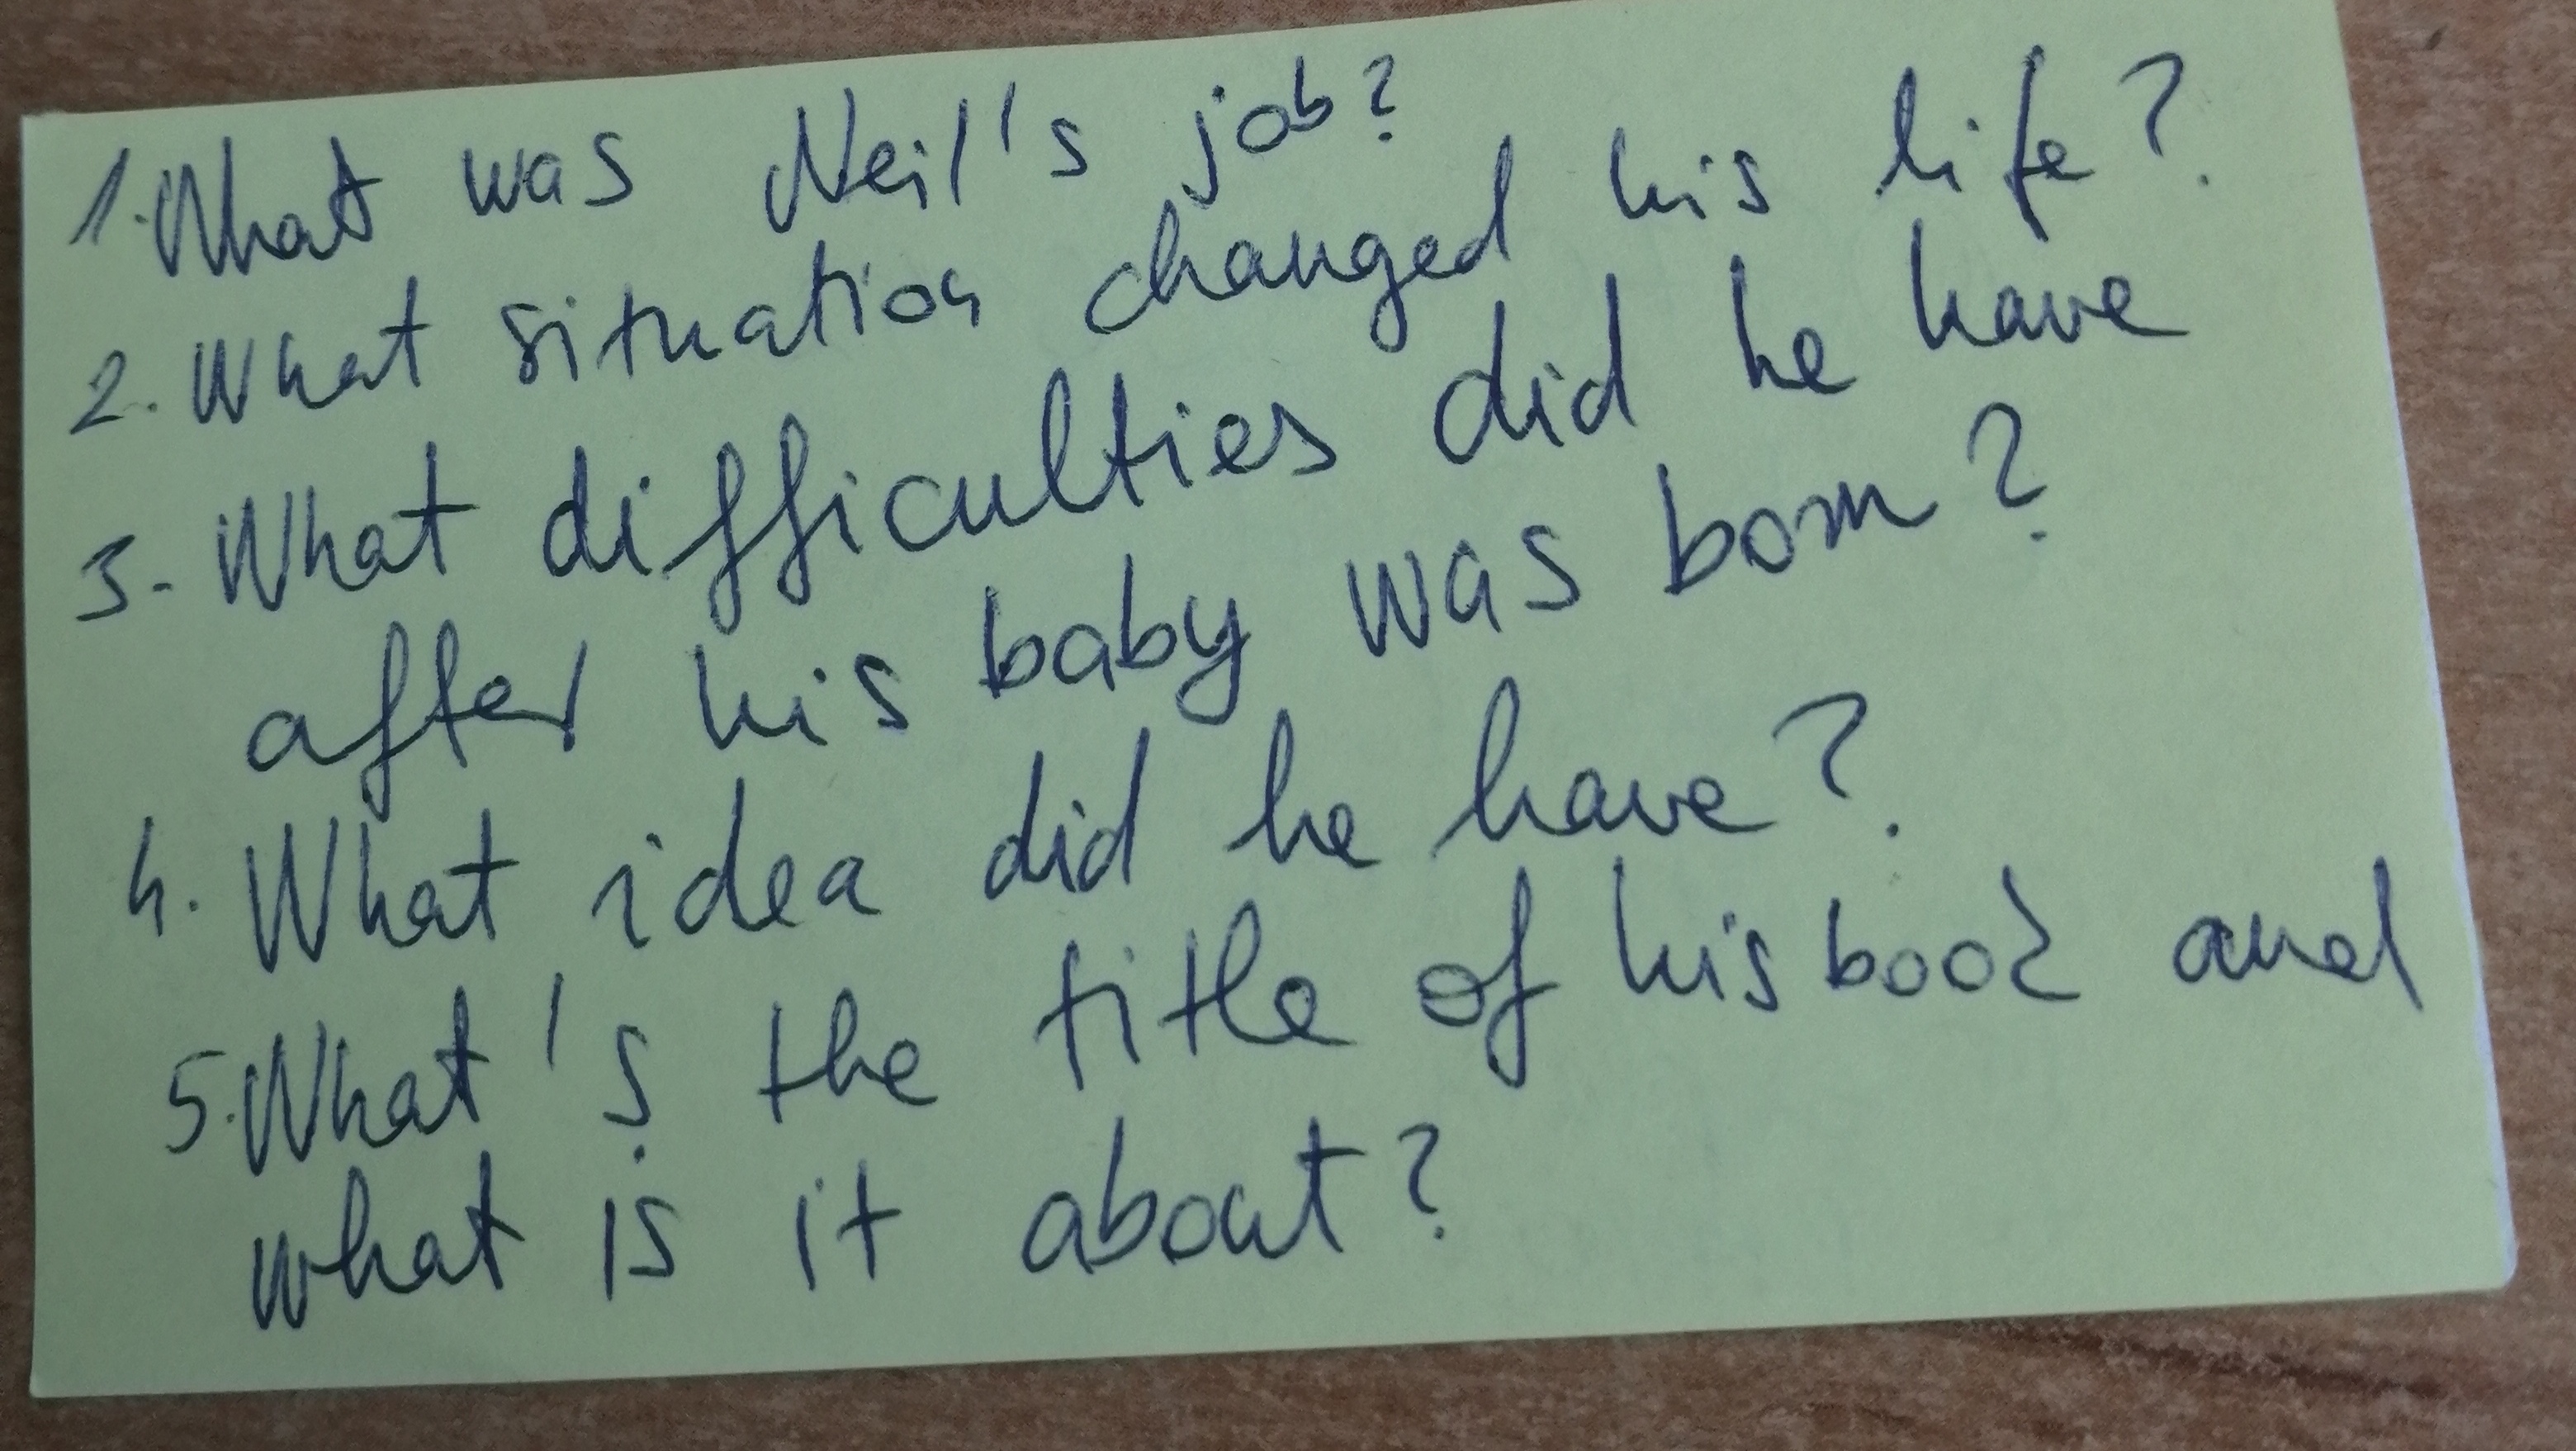 1. What was Neil's job?
2. What situation changed his life?
3. What difficulties did he have
after his baby was born?
4. What idea did he have?
5. What's the title of his book and
what is it about?